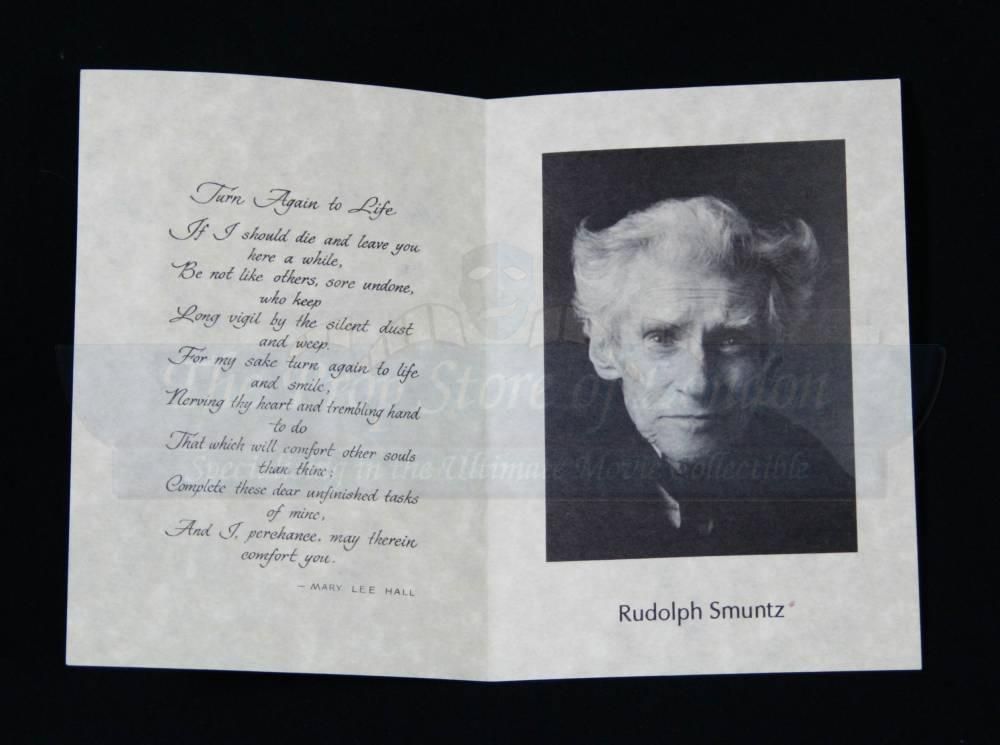 Turn Again to Life
If I should die and leave you
here a while,
Be not like others, sore undone,
who keep
Long vigil by the silent dust
and weep.
For my sake turn again to life
and smile,
Nerving thy heart and trembling hand
to do
That which will comfort other souls
than thine;
Complete these dear unfinished tasks
of mine,
And I, perchance, may therein
comfort you.
— MARY LEE HALL
Rudolph Smuntz
The Prop Store of London
Specialising in the Ultimate Movie Collectible